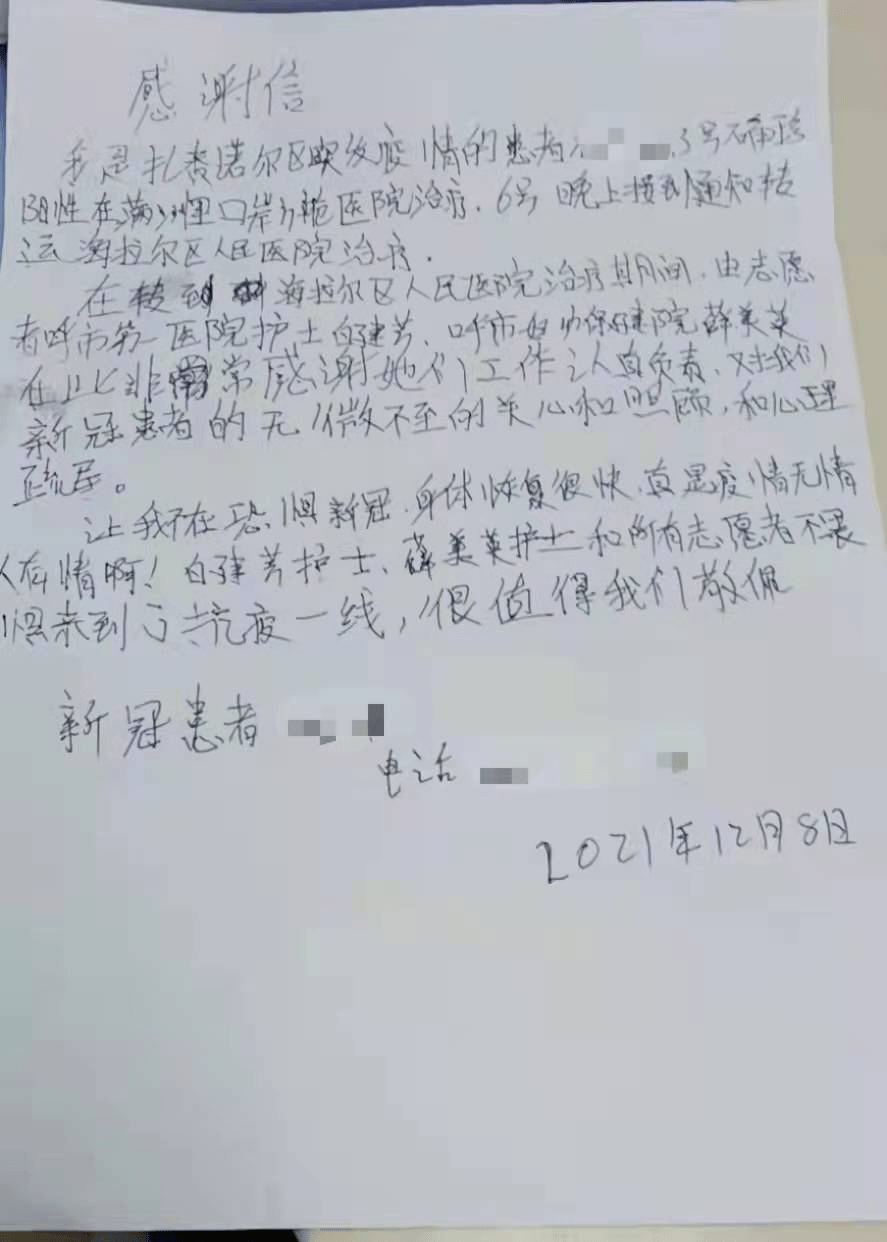 感谢信
我是扎赉诺尔区突发疫情的患者 3号确诊
阳性在满洲里口岸 医院治疗.6号晚上接到通知转
运海拉尔区人民医院治疗.
在转到 海拉尔区人民医院治疗其月间.由志愿
者呼市第一医院护士白建芳、呼市妇幼保健院薛美英
在此非 常感谢她们工作认真负责、对我们
新冠患者的无微不至的关心和照顾,和心理
疏导。
让我不在恐惧新冠.身体恢复很快.真是疫情无情
人有情啊!白建芳护士、薛美英护士和所有志愿者不畏
惧来到了抗疫一线,很值得我们敬佩
新冠患者
电话
2021年12月8日